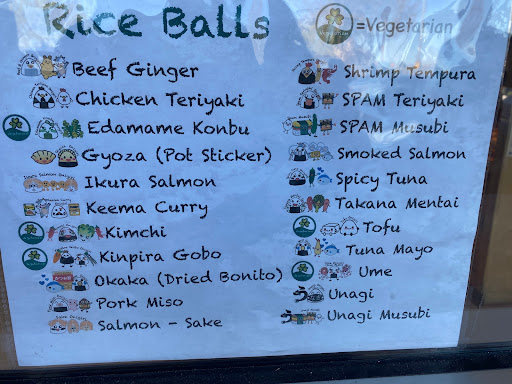 Rice Balls
=Vegetarian
Beef Ginger
Chicken Teriyaki
Edamame Konbu
Gyoza (Pot Sticker)
Ikura Salmon
Keema Curry
Kimchi
Kinpira Gobo
Okaka (Dried Bonito)
Pork Miso
Salmon - Sake
Shrimp Tempura
SPAM Teriyaki
SPAM Musubi
Smoked Salmon
Spicy Tuna
Takana Mentai
Tofu
Tuna Mayo
Ume
う Unagi
う Unagi Musubi